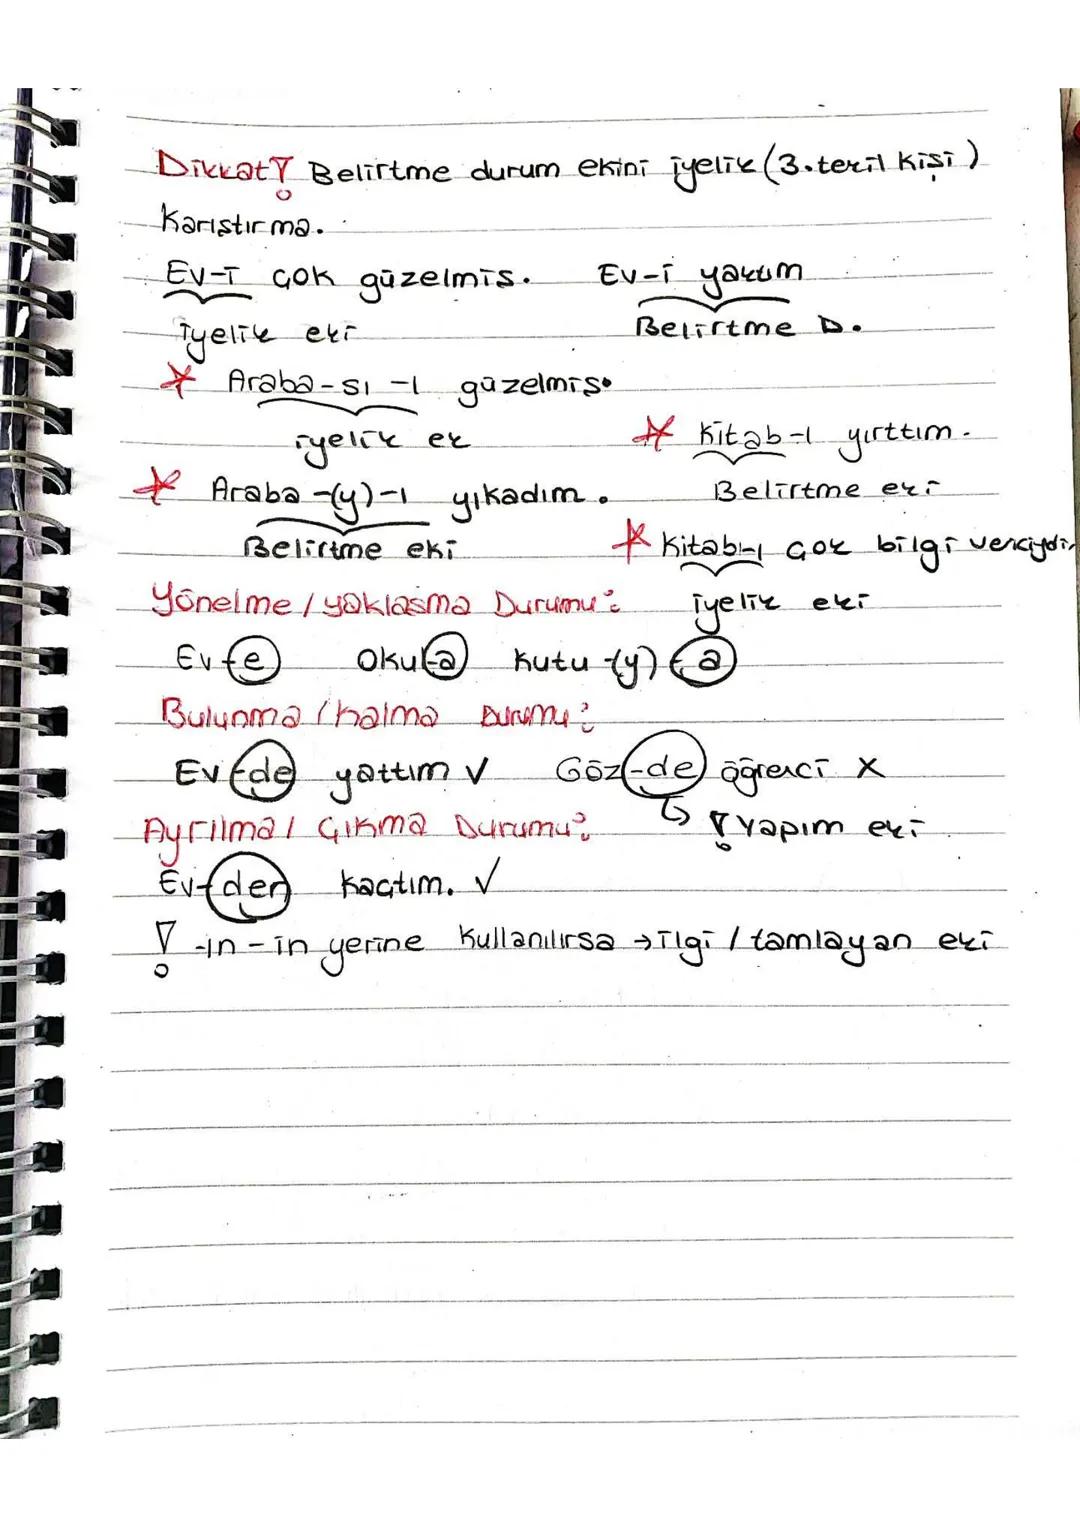 Dikkat! Belirtme durum ekini iyelik (3. tekil kişi)
Karıştırma.
Ev-i çok güzelmiş. Ev-i yaktım
iyelik eki Belirtme D.
* Araba-sı -ı güzelmiş.
iyelik ek * Kitab-ı yırttım.
* Araba-(y)-ı yıkadım. Belirtme eki
Belirtme eki * Kitab-ı çok bilgi vericiydi
Yönelme / yaklaşma Durumu: iyelik eki
Ev-e Okul-a kutu-(y)-a
Bulunma / kalma Durumu:
Ev-de yattım ✓ Göz-de öğrenci X
Ayrılma / Çıkma Durumu: ↳ ! Yapım eki
Ev-den kaçtım. ✓
! -ın -in yerine kullanılırsa → ilgi / tamlayan eki